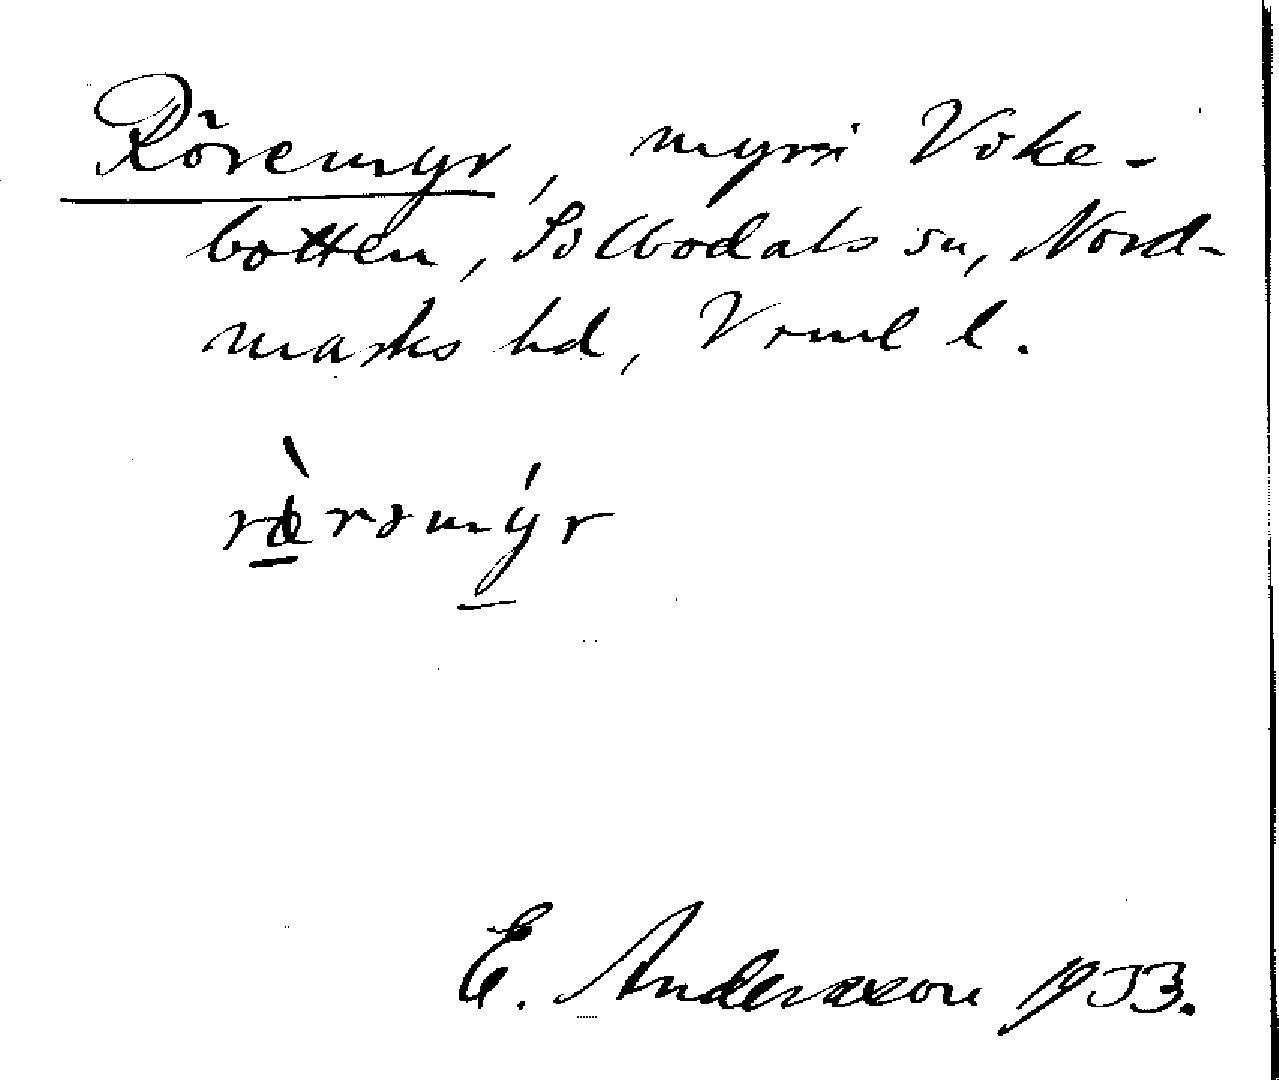 Röremyr, myr i Voke-
botten, Sillbodals sn, Nord-
marks hd, Vrml l.
rœ̀rəmýr
E. Andersson 1933.